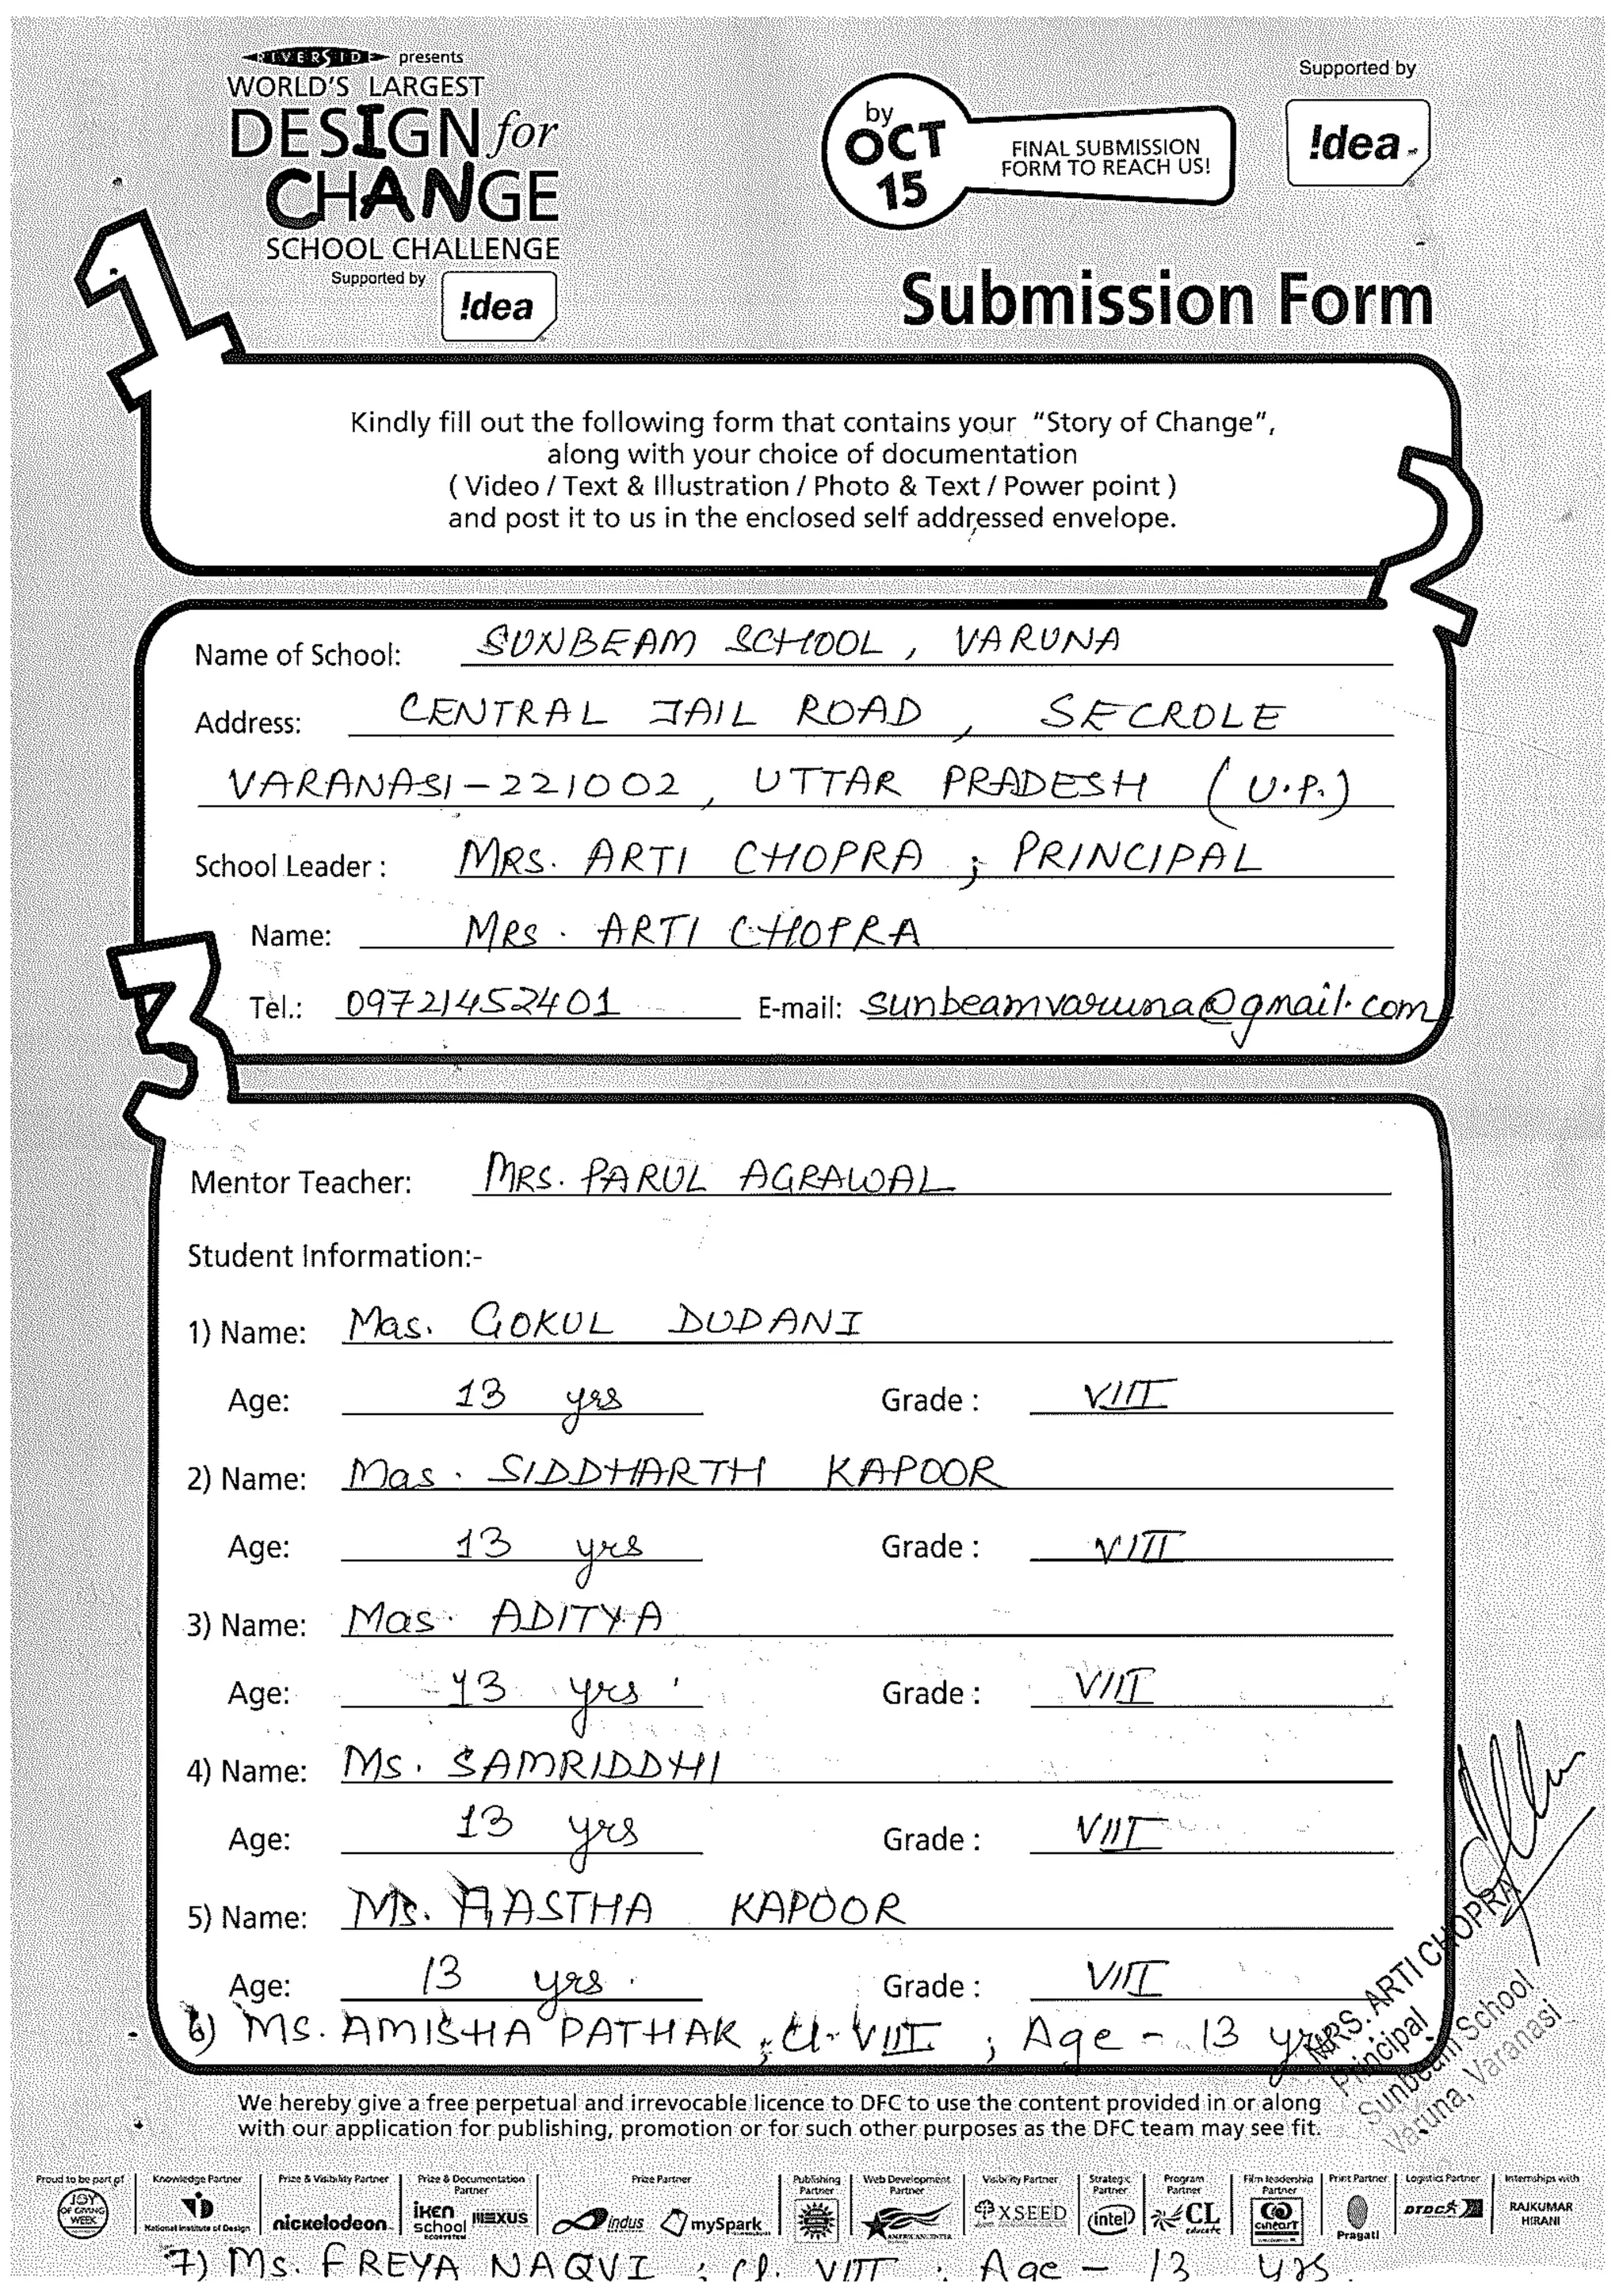 RIVERSIDE presents
WORLD'S LARGEST
DESIGN for
CHANGE
SCHOOL CHALLENGE
Supported by
!dea
by
OCT
15
FINAL SUBMISSION
FORM TO REACH US!
Supported by
!dea
Submission Form
1
Kindly fill out the following form that contains your "Story of Change",
along with your choice of documentation
( Video / Text & Illustration / Photo & Text / Power point )
and post it to us in the enclosed self addressed envelope.
2
Name of School: SUNBEAM SCHOOL, VARUNA
Address: CENTRAL JAIL ROAD, SECROLE
VARANASI-221002, UTTAR PRADESH (U.P.)
School Leader : MRS. ARTI CHOPRA ; PRINCIPAL
Name: MRS. ARTI CHOPRA
Tel.: 09721452401 E-mail: sunbeamvaruna@gmail.com
3
Mentor Teacher: MRS. PARUL AGRAWAL
Student Information:-
1) Name: Mas. GOKUL DUDANI
Age: 13 yrs Grade : VIII
2) Name: Mas. SIDDHARTH KAPOOR
Age: 13 yrs Grade : VIII
3) Name: Mas. ADITYA
Age: 13 yrs Grade : VIII
4) Name: Ms. SAMRIDDHI
Age: 13 yrs Grade : VIII
5) Name: Ms. AASTHA KAPOOR
Age: 13 yrs. Grade : VIII
6) MS. AMISHA PATHAK ; Cl-VIII ; Age - 13 yrs
MRS. ARTI CHOPRA
Principal
Sunbeam School
Varuna, Varanasi
We hereby give a free perpetual and irrevocable licence to DFC to use the content provided in or along
with our application for publishing, promotion or for such other purposes as the DFC team may see fit.
Proud to be part of
JOY OF GIVING WEEK
Knowledge Partner
National Institute of Design
Prize & Visibility Partner
nickelodeon
Prize & Documentation Partner
iken school ECOSYSTEM NEXUS
Prize Partner
indus mySpark
Publishing Partner
Web Development Partner
AMERICAN CENTER
Visibility Partner
XSEED
Strategic Partner
intel
Program Partner
CL educate
Film leadership Partner
cineart
Print Partner
Pragati
Logistics Partner
DTDC
Internships with
RAJKUMAR HIRANI
7) Ms. FREYA NAQVI ; Cl. VIII ; Age - 13 yrs.